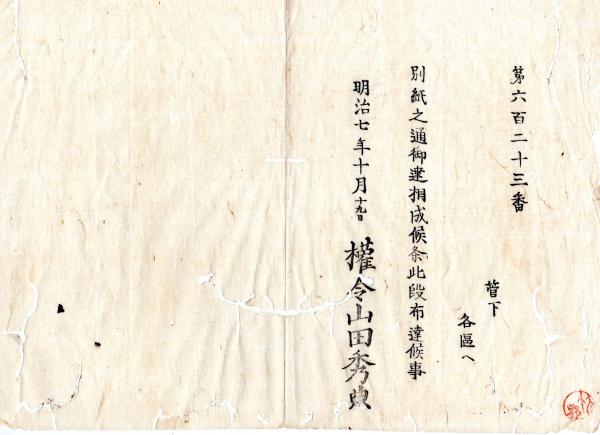 第六百二十三番
管下
各區へ
別紙之通御達相成候条此段布達候事
明治七年十月十九日
權令山田秀典